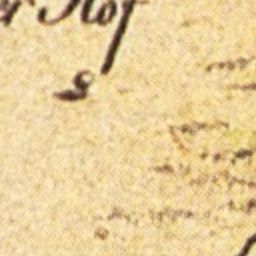 er Hof